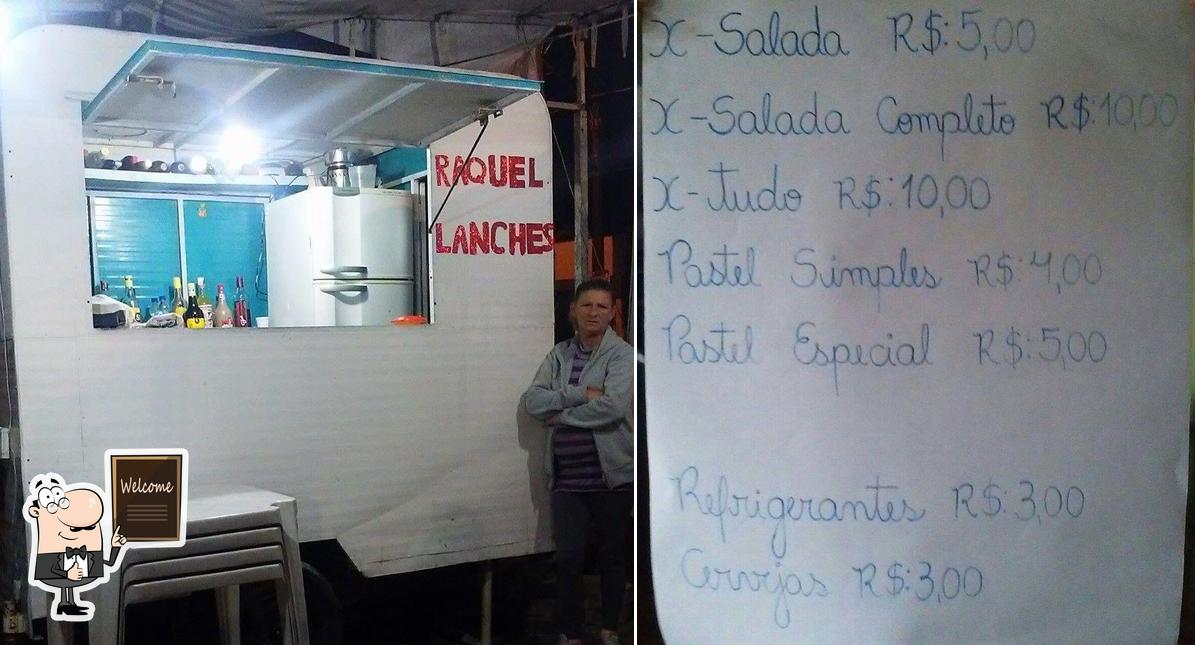 RAQUEL
LANCHES
Welcome
X-Salada R$:5,00
X-Salada Completo R$:10,00
X-Tudo R$:10,00
Pastel Simples R$:4,00
Pastel Especial R$:5,00
Refrigerantes R$:3,00
Cervejas R$:3,00